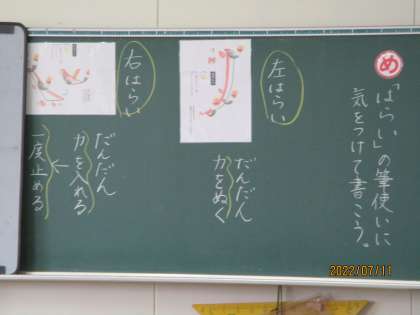 め
「はらい」の筆使いに
気をつけて書こう。
左はらい
だんだん
力をぬく
右はらい
だんだん
力を入れる
↓
一度止める
2022/07/11